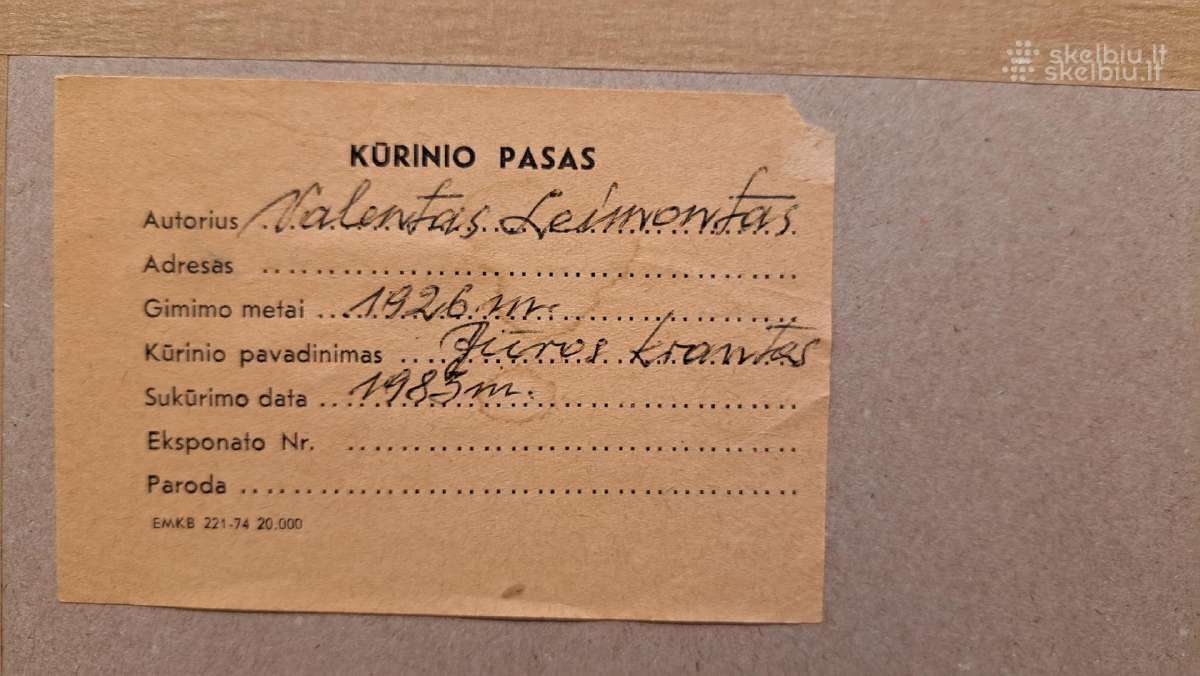 skelbiu.lt
skelbiu.lt
KŪRINIO PASAS
Autorius Valentas Leimontas
Adresas
Gimimo metai 1926 m.
Kūrinio pavadinimas Jūros krantas
Sukūrimo data 1985 m.
Eksponato Nr.
Paroda
EMKB 221-74 20.000